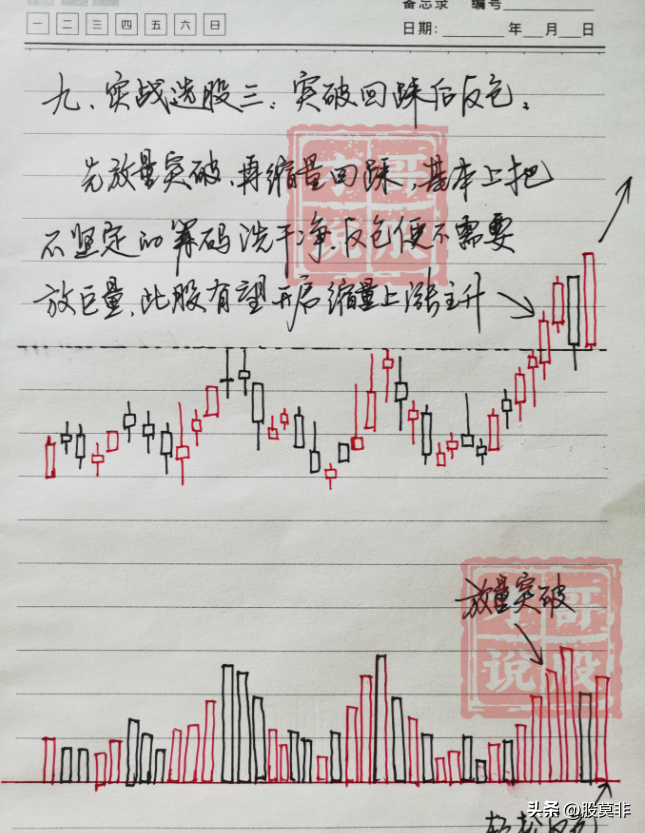 备忘录 编号
一 二 三 四 五 六 日
日期: 年 月 日
九、实战选股三：突破回踩后反包。
先放量突破，再缩量回踩，基本上把
不坚定的筹码洗干净，反包便不需要
放巨量，此股有望开启缩量上涨主升
放量突破
哥
说股
头条 @股莫非